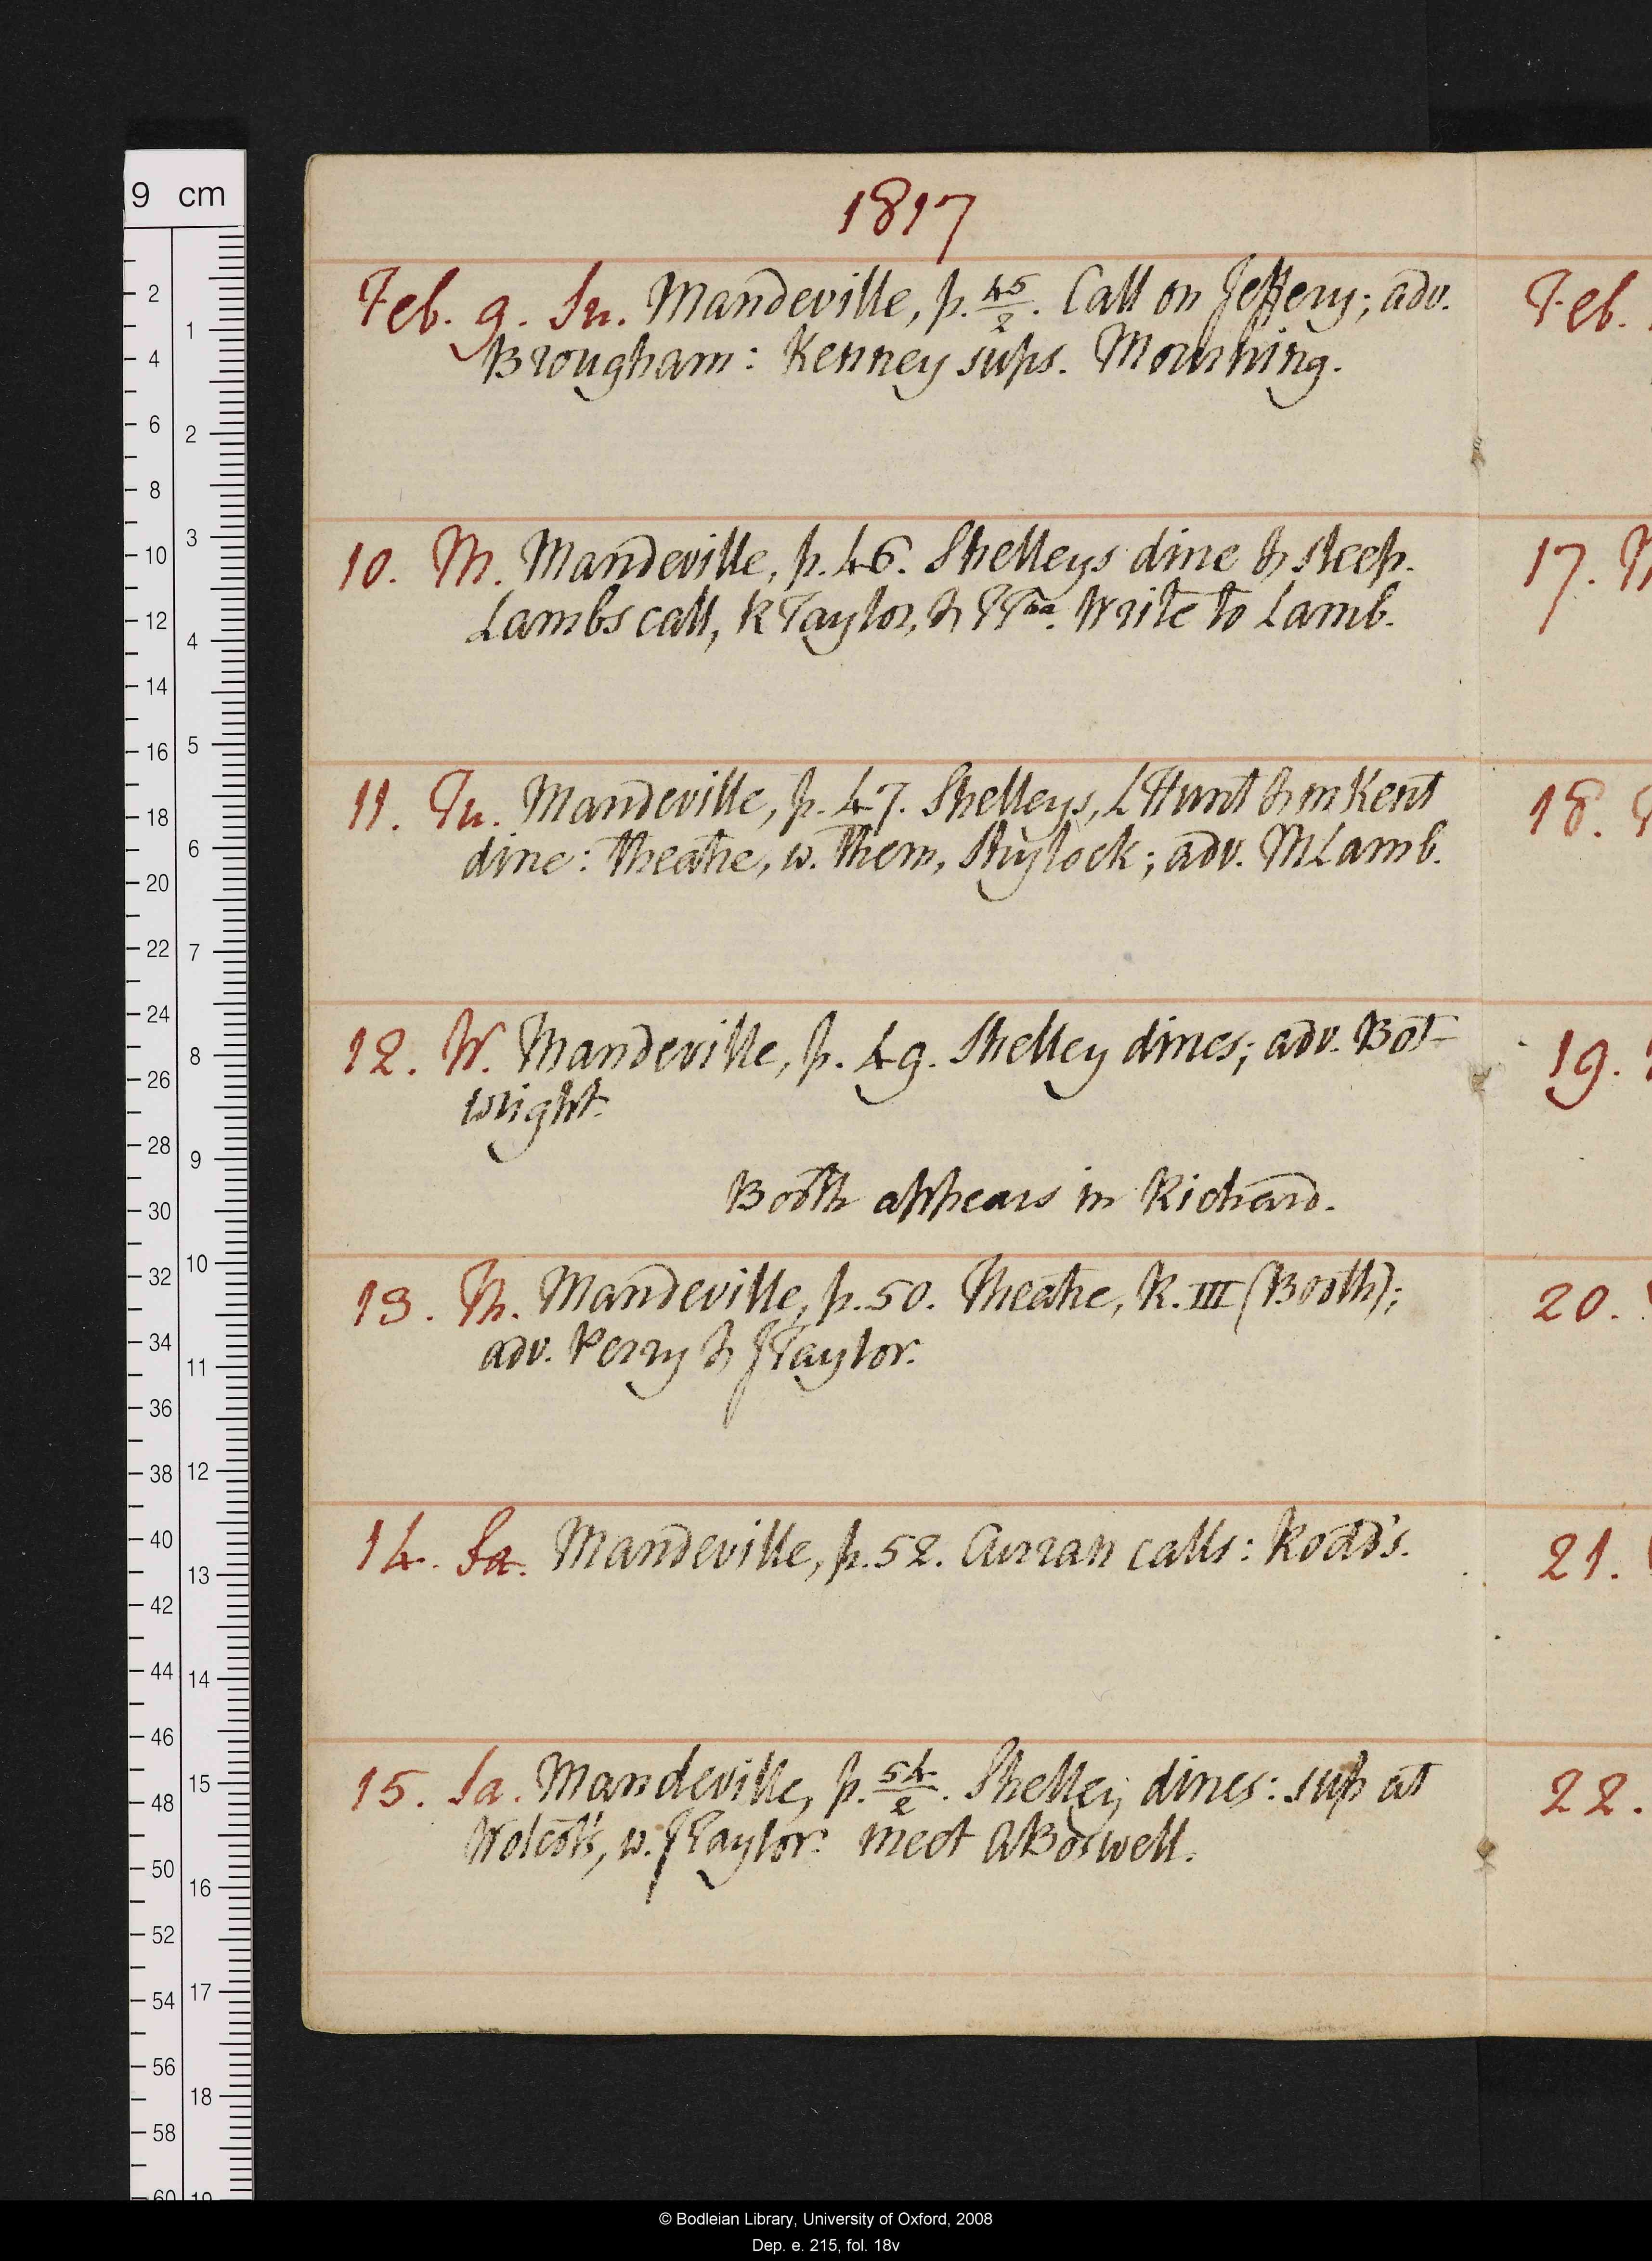 1817
Feb. 9. Su. Mandeville, p. 45/2. Call on Jeffery; adv.
Brougham: Kenney sups. Mourning.
10. M. Mandeville, p. 46. Shelleys dine & sleep.
Lambs call, R Taylor, & PPtna. Write to Lamb.
11. Tu. Mandeville, p. 47. Shelleys, L Hunt & m Kent
dine: theatre, w. them, Shylock; adv. M Lamb.
12. W. Mandeville, p. 49. Shelley dines; adv. Bot-
wright.
Booth appears in Richard.
13. Th. Mandeville, p. 50. Theatre, R. III (Booth);
adv. Perry & J Taylor.
14. Sa. Mandeville, p. 52. Curran calls: Rodd's.
15. Sa. Mandeville, p. 54/2. Shelley dines: sup at
Wolcot's, w. J Taylor: meet A Boswell.
Feb.
17.
18.
19.
20.
21.
22.
9 cm
2
4
6
8
10
12
14
16
18
20
22
24
26
28
30
32
34
36
38
40
42
44
46
48
50
52
54
56
58
60
1
2
3
4
5
6
7
8
9
10
11
12
13
14
15
16
17
18
19
© Bodleian Library, University of Oxford, 2008
Dep. e. 215, fol. 18v